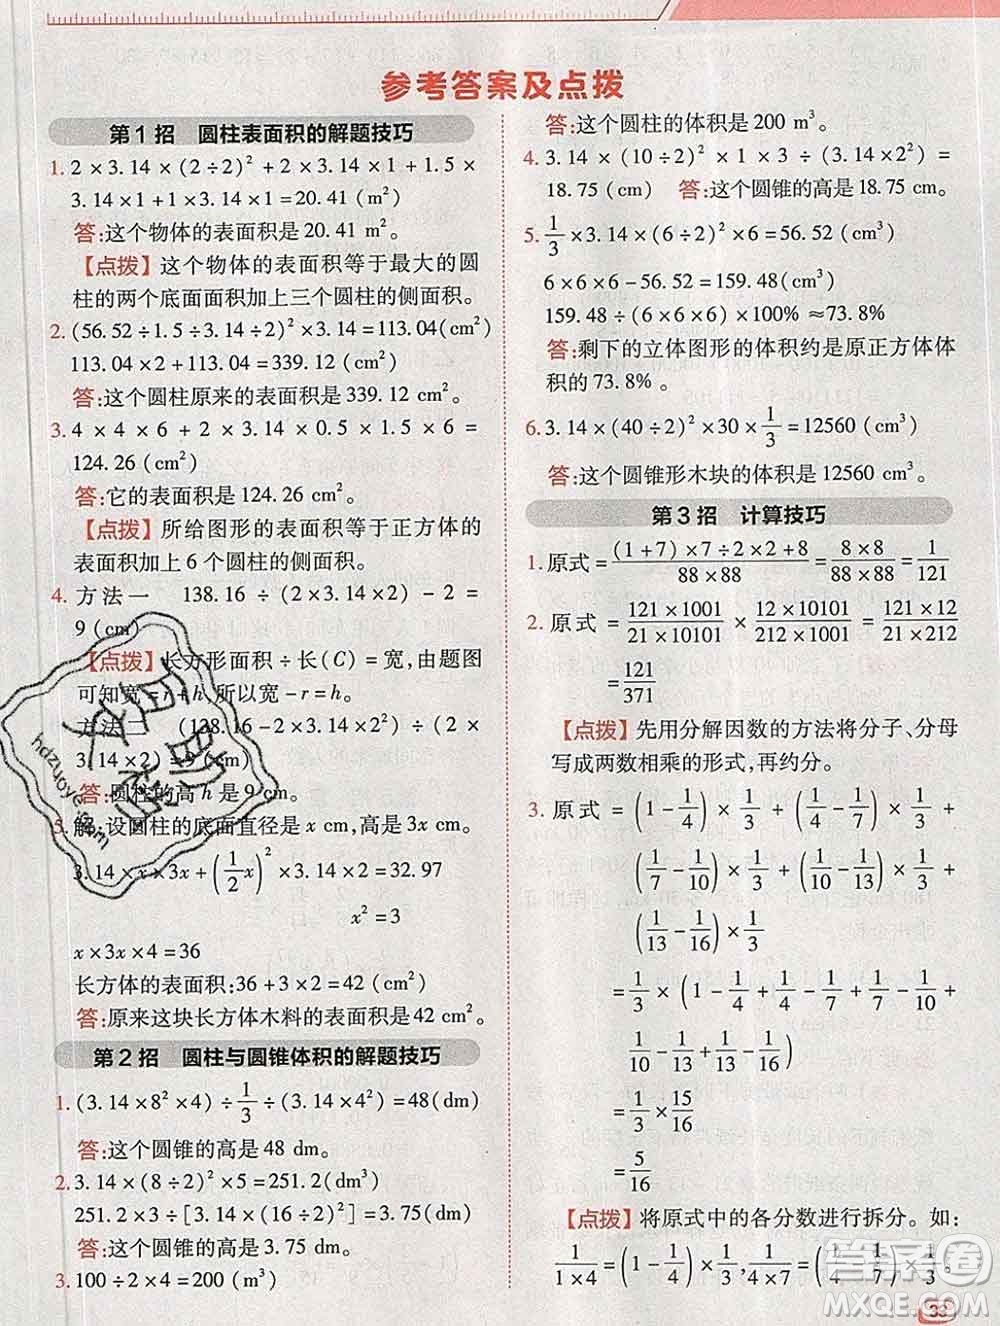 参考答案及点拨
第1招 圆柱表面积的解题技巧
1. 2×3.14×(2÷2)²+2×3.14×1+1.5×
3.14×1+1×3.14×1=20.41(m²)
答:这个物体的表面积是20.41 m²。
【点拨】这个物体的表面积等于最大的圆
柱的两个底面面积加上三个圆柱的侧面积。
2. (56.52÷1.5÷3.14÷2)²×3.14=113.04(cm²)
113.04×2+113.04=339.12(cm²)
答:这个圆柱原来的表面积是339.12 cm²。
3. 4×4×6+2×3.14×0.5×1.5×6=
124.26(cm²)
答:它的表面积是124.26 cm²。
【点拨】所给图形的表面积等于正方体的
表面积加上6个圆柱的侧面积。
4. 方法一 138.16÷(2×3.14×2)-2=
9(cm)
【点拨】长方形面积÷长(C)=宽,由题图
可知宽=r+h,所以宽-r=h。
方法二 (138.16-2×3.14×2²)÷(2×
3.14×2)=9(cm)
答:圆柱的高h是9 cm。
5. 解:设圆柱的底面直径是x cm,高是3x cm。
3.14×x×3x+(1/2 x)²×3.14×2=32.97
x²=3
x×3x×4=36
长方体的表面积:36+3×2=42(cm²)
答:原来这块长方体木料的表面积是42 cm²。
第2招 圆柱与圆锥体积的解题技巧
1. (3.14×8²×4)÷1/3÷(3.14×2²)=48(dm)
答:这个圆锥的高是48 dm。
2. 3.14×(8÷2)²×5=251.2(dm³)
251.2×3÷[3.14×(16÷2)²]=3.75(dm)
答:这个圆锥的高是3.75 dm。
3. 100÷2×4=200(m³)
答:这个圆柱的体积是200 m³。
4. 3.14×(10÷2)²×1×3÷(3.14×2²)=
18.75(cm) 答:这个圆锥的高是18.75 cm。
5. 1/3×3.14×(6÷2)²×6=56.52(cm³)
6×6×6-56.52=159.48(cm³)
159.48÷(6×6×6)×100%≈73.8%
答:剩下的立体图形的体积约是原正方体体
积的73.8%。
6. 3.14×(40÷2)²×30×1/3=12560(cm³)
答:这个圆锥形木块的体积是12560 cm³。
第3招 计算技巧
1. 原式=(1+7)×7÷2×2+8/88×88=8×8/88×88=1/121
2. 原式=121×1001/21×10101×12×10101/212×1001=121×12/21×212
=121/371
【点拨】先用分解因数的方法将分子、分母
写成两数相乘的形式,再约分。
3. 原式=(1-1/4)×1/3+(1/4-1/7)×1/3+
(1/7-1/10)×1/3+(1/10-1/13)×1/3+
(1/13-1/16)×1/3
=1/3×(1-1/4+1/4-1/7+1/7-1/10+
1/10-1/13+1/13-1/16)
=1/3×15/16
=5/16
【点拨】将原式中的各分数进行拆分。如:
1/1×4=(1-1/4)×1/3,1/4×7=(1/4-1/7)×1/3。
33
答案圈
MXQE.COM
hdzuoye.com